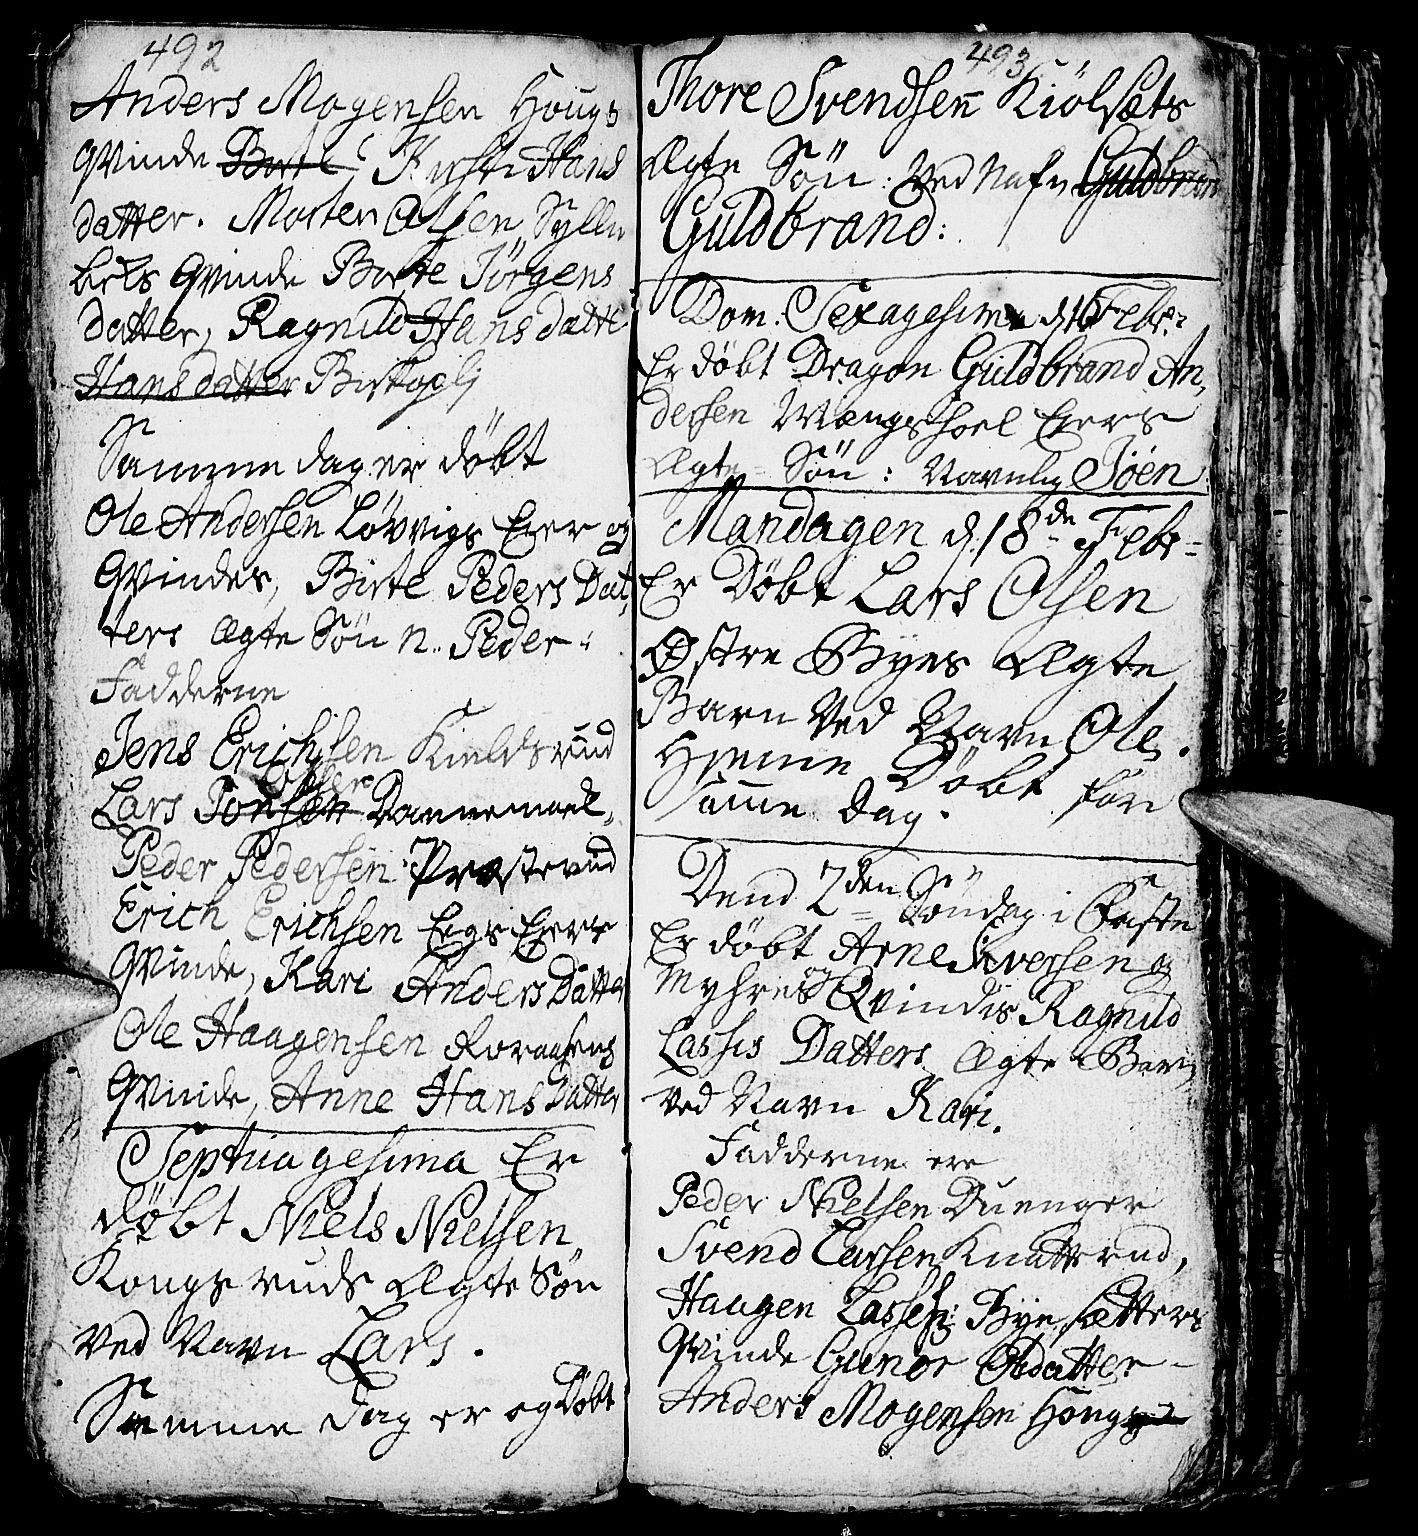 492
Anders Mogensen Hougs
Qvinde Birte Kirsti Hans
datter. Morten Olsen Sylle
bechs Qvinde Birte Jörgens
datter, Ragnild Hans datte
Hans datter Birkopli
Samme dag er döbt
Ole Andersen Lövvigs Eier og
Qvindes, Birte Peders Dat,
ters ægte Sön n. Peder.
Fadderne
Jens Erichsen Kieldsrud
Olsen
Lars Jonsen Dannemoel,
Peder Pedersen Præsterud
Erich Erichsen Eigs Eiers
Qvinde, Kari Anders Datter
Ole Haagensen
Qvinde, Anne Hans Datter
Septuagesima Er
döbt Niels Nielsen
Kongsruds Ægte Sön
ved Navn Lars.
Samme dag er og Döbt
493
Thore Svendsen Kiölsæts
Ægte Sön: Ved Nafn Guldbrand
Guldbrand:
Dom: Sexagesima d 16 Febr:
Er döbt Dragon Guldbrand An,
dersen Wængshoel Eiers
Ægte Sön: Navnlig Joen
Mandagen d. 18de Febr=
Er Döbt Lars Olsen
Østre Byes Ægte
Barn Ved Navn Ole.
Hjemme Döbt
samme Dag.
Dend 2den Söndag i Faste
Er döbt Arne Iversen
Myhres og Qvindis Ragnild
Lasses Datters Ægte Barn
ved Navn Kari.
Fadderne ere
Peder Nielsen Duenger
Svend Larsen Knatterud,
Haagen Lassesen: Bye, sætters
Qvinde Gunor Olsdatter-
Anders Mogensen Houg